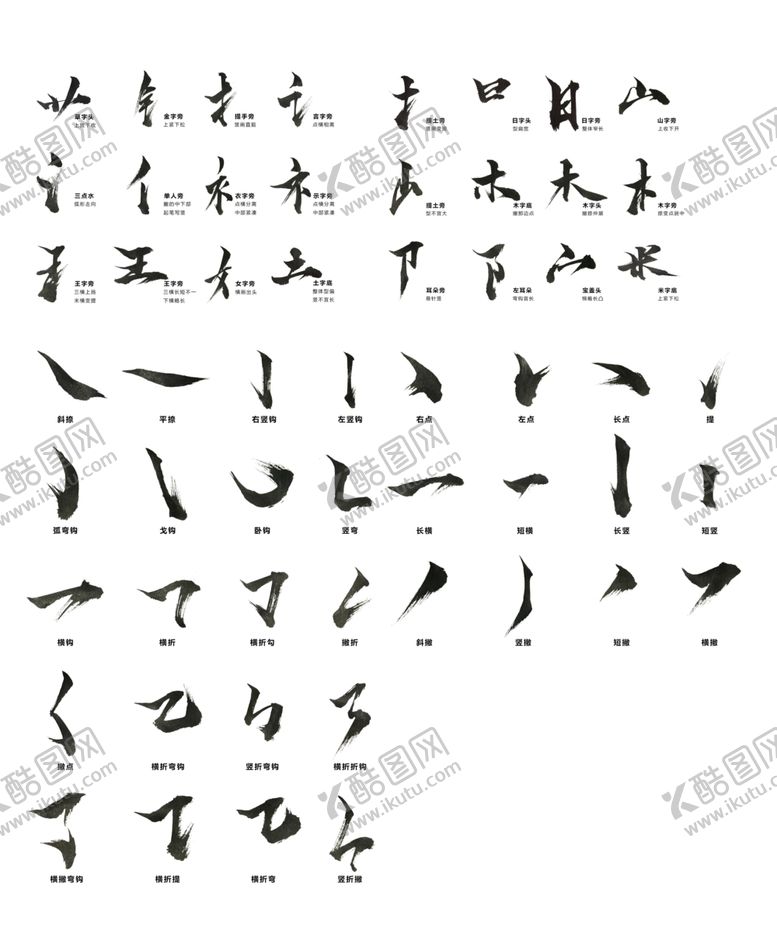 草字头
金字旁
上紧下松
提手旁
竖画直挺
言字旁
点横相离
提土旁
日字头
型扁宽
日字旁
整体窄长
山字旁
上收下开
三点水
弧形左向
单人旁
撇的中下部
起笔写竖
衣字旁
点横分离
中部紧凑
示字旁
点横分离
中部紧凑
提土旁
型不宜大
木字底
撇捺边点
木字头
撇捺伸展
木字旁
捺变点驻中
王字旁
三横上斜
末横变提
王字旁
三横长短不一
下横略长
女字旁
横画出头
土字底
整体型偏
竖不宜长
耳朵旁
悬针竖
左耳朵
弯钩宜长
宝盖头
横略长凸
米字底
上紧下松
斜捺
平捺
右竖钩
左竖钩
右点
左点
长点
提
弧弯钩
戈钩
卧钩
竖弯
长横
短横
长竖
短竖
横钩
横折
横折勾
撇折
斜撇
竖撇
短撇
横撇
撇点
横折弯钩
竖折弯钩
横折折钩
横撇弯钩
横折提
横折弯
竖折撇
酷图网
www.ikutu.com